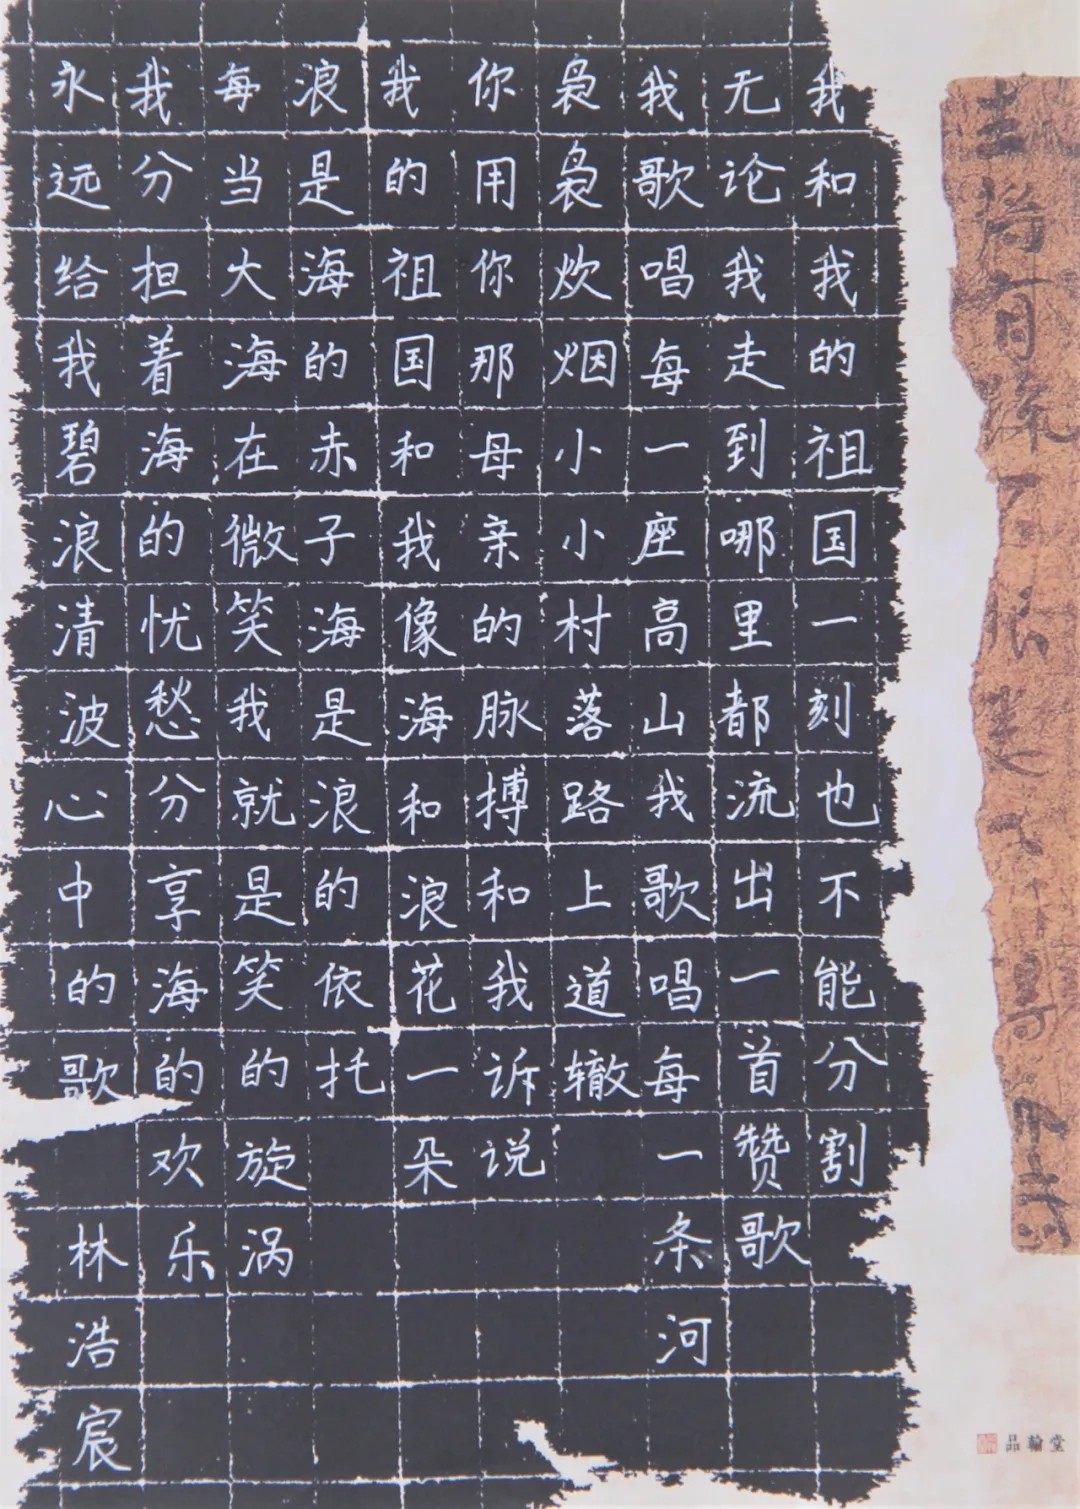 我和我的祖国一刻也不能分割
无论我走到哪里都流出一首赞歌
我歌唱每一座高山我歌唱每一条河
袅袅炊烟小小村落路上道辙
你用你那母亲的脉搏和我诉说
我的祖国和我像海和浪花一朵
浪是海的赤子海是浪的依托
每当大海在微笑我就是笑的旋涡
我分担着海的忧愁分享海的欢乐
永远给我碧浪清波心中的歌
林浩宸
品翰堂